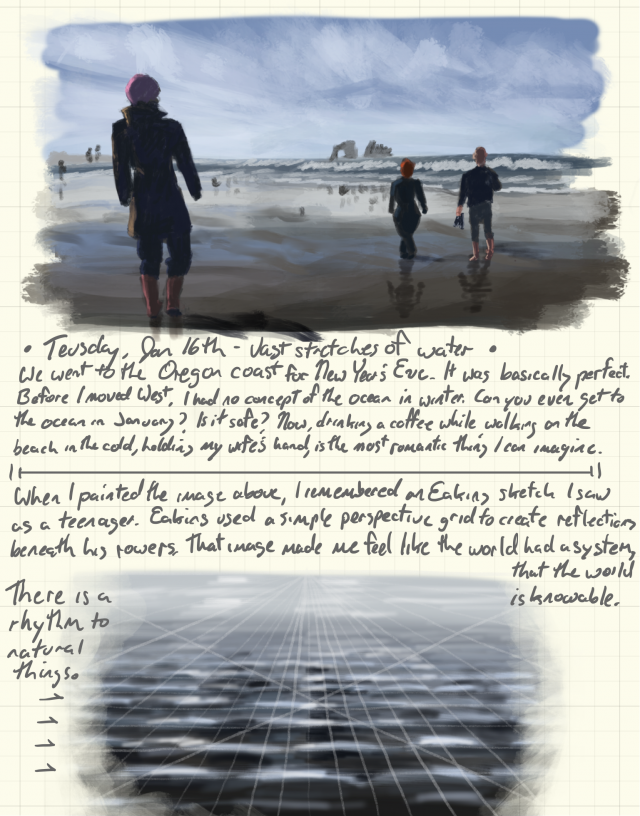 • Teusday, Jan 16th - Vast stretches of water •
We went to the Oregon coast for New Year's Eve. It was basically perfect.
Before I moved West, I had no concept of the ocean in winter. Can you even get to
the ocean in January? Is it safe? Now, drinking a coffee while walking on the
beach in the cold, holding my wife's hand, is the most romantic thing I can imagine.
When I painted the image above, I remembered an Eakins sketch I saw
as a teenager. Eakins used a simple perspective grid to create reflections
beneath his rowers. That image made me feel like the world had a system,
that the world
is knowable.
There is a
rhythm to
natural
things.